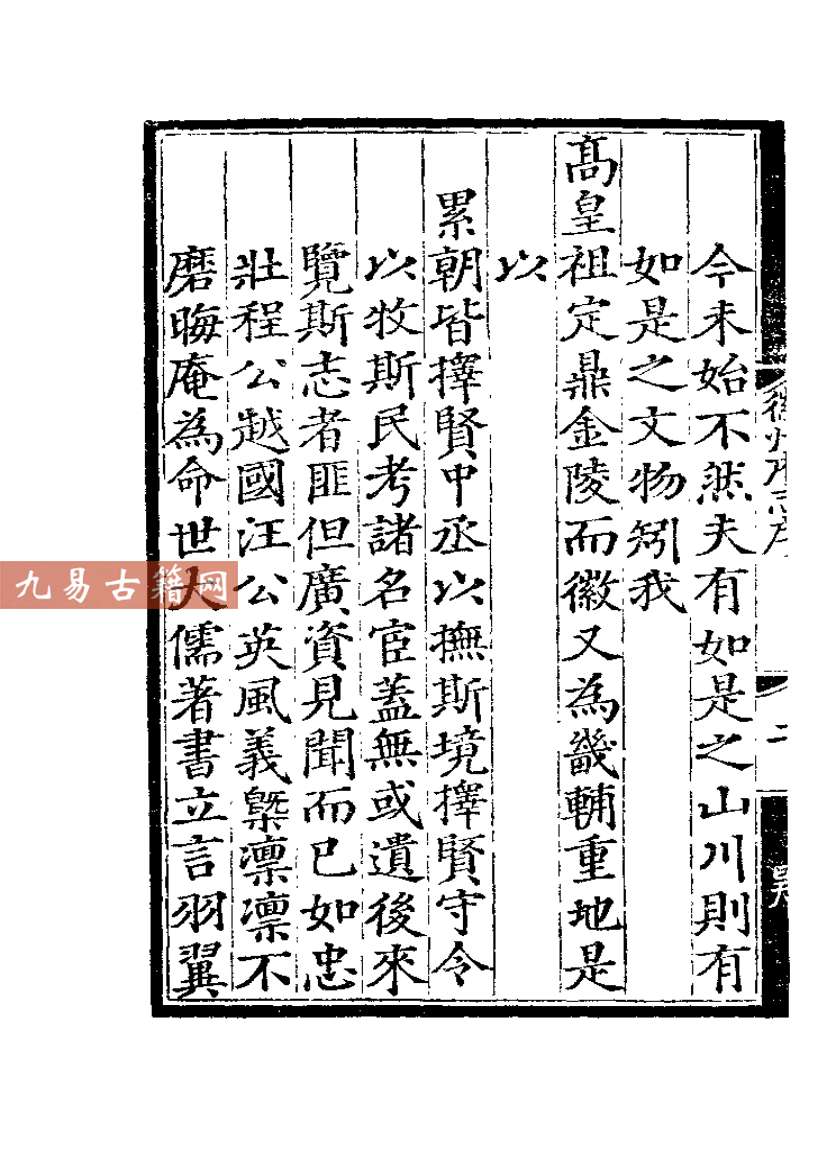 今未始不然夫有如是之山川則有
如是之文物矧我
髙皇祖定鼎金陵而徽又為畿輔重地是
以
累朝皆擇賢中丞以撫斯境擇賢守令
以牧斯民考諸名宦蓋無或遺後來
覽斯志者匪但廣資見聞而已如忠
壯程公越國汪公英風義槩凛凛不
磨晦庵為命世大儒著書立言羽翼
徽州府志序
二
九易古籍网